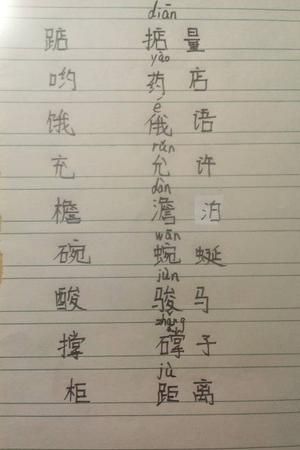 diān
踮 掂量
yào
哟 药店
é
饿 俄语
rǎn
充 允许
dàn
檐 澹泊
wān
碗 蜿蜒
jùn
酸 骏马
zhǎng
撑 礃子
jù
柜 距离